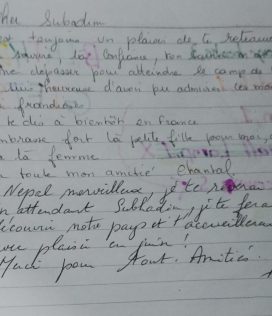 cher Subadim
est toujours un plaisir de te retrouver
sourire, ta confiance, ton
me dépasser pour atteindre le camp de
suis heureuse d'avoir pu admirer ces
grandioses
te dis à bientôt en France
embrasse fort la petite fille pour moi,
la femme
toute mon amitié Chantal.
Népal merveilleux, je te reverrai
n attendant Subhadim, je te ferai
découvrir notre pays et t'accueillerai
avec plaisir en juin!
Merci pour tout. Amitiés.